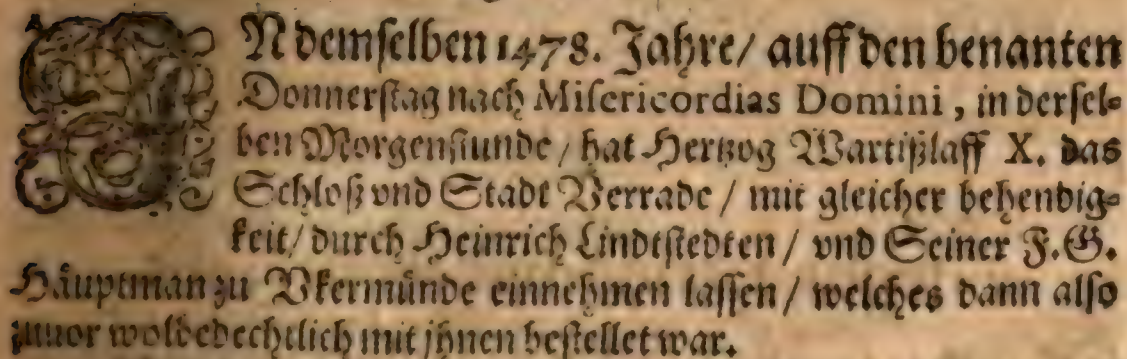 IN demselben 1478. Jahre/ auff den benanten
Donnerstag nach Misericordias Domini, in dersel-
ben Morgenstunde / hat Hertzog Wartißlaff X. das
Schloß vnd Stadt Verrade / mit gleicher behendig-
keit/ durch Heinrich Lindtstedten / vnd Seiner F.G.
Häuptman zu Vkermünde einnehmen lassen / welches dann also
zuuor wolbedechtlich mit jhnen bestellet war.